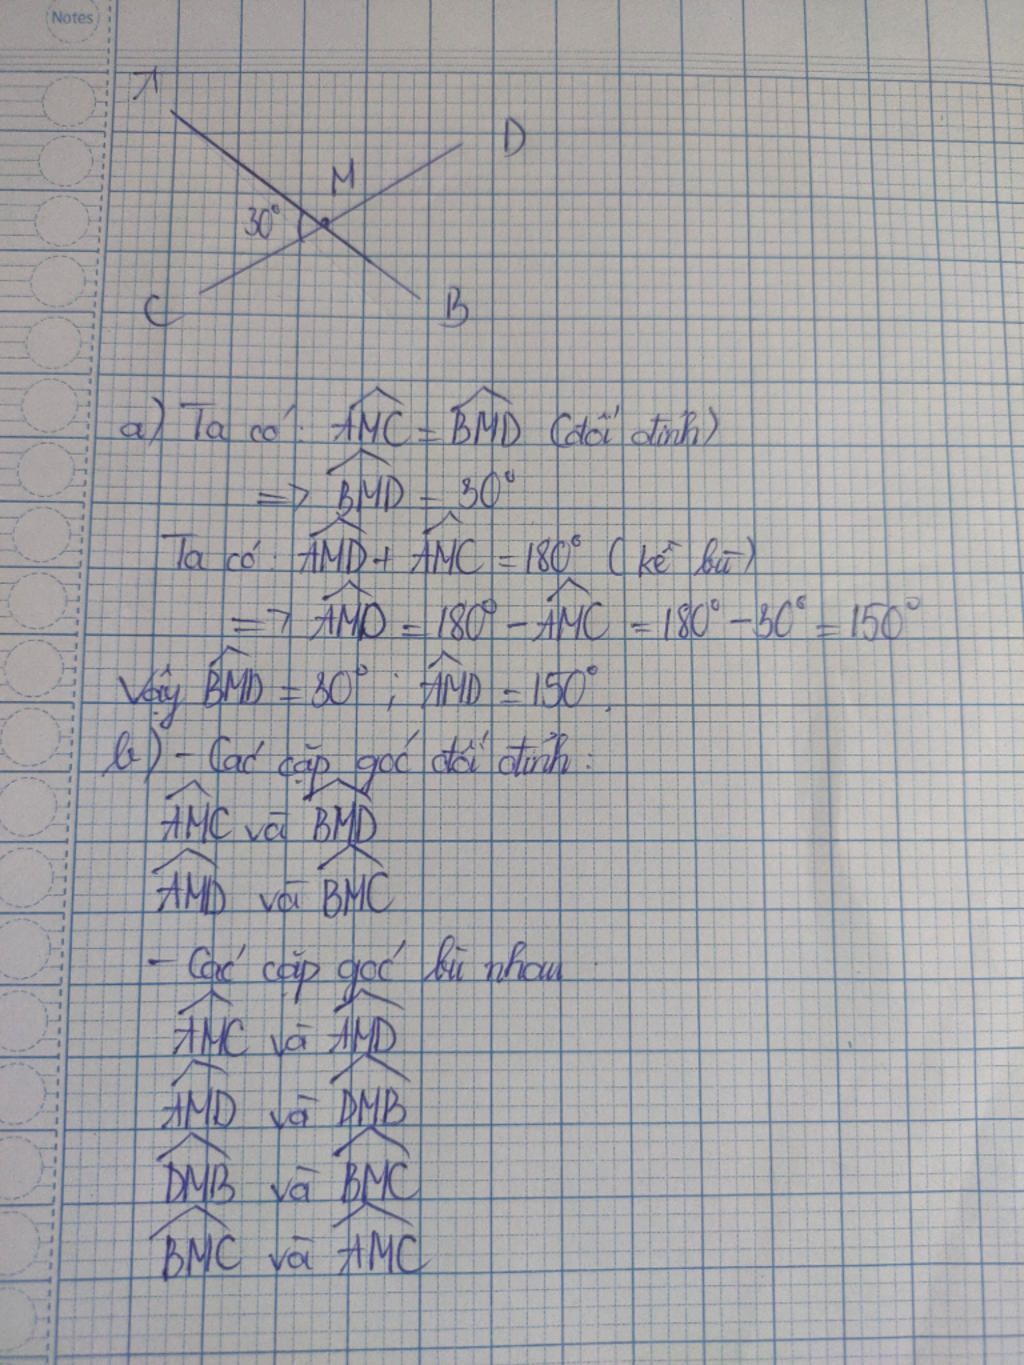 Notes
A
D
M
30°
C
B
a) Ta có: \widehat{AMC} = \widehat{BMD} (đối đỉnh)
=> \widehat{BMD} = 30°
Ta có: \widehat{AMD} + \widehat{AMC} = 180° (kề bù)
=> \widehat{AMD} = 180° - \widehat{AMC} = 180° - 30° = 150°
Vậy \widehat{BMD} = 30° ; \widehat{AMD} = 150°.
b) - Các cặp góc đối đỉnh:
\widehat{AMC} và \widehat{BMD}
\widehat{AMD} và \widehat{BMC}
- Các cặp góc bù nhau
\widehat{AMC} và \widehat{AMD}
\widehat{AMD} và \widehat{DMB}
\widehat{DMB} và \widehat{BMC}
\widehat{BMC} và \widehat{AMC}